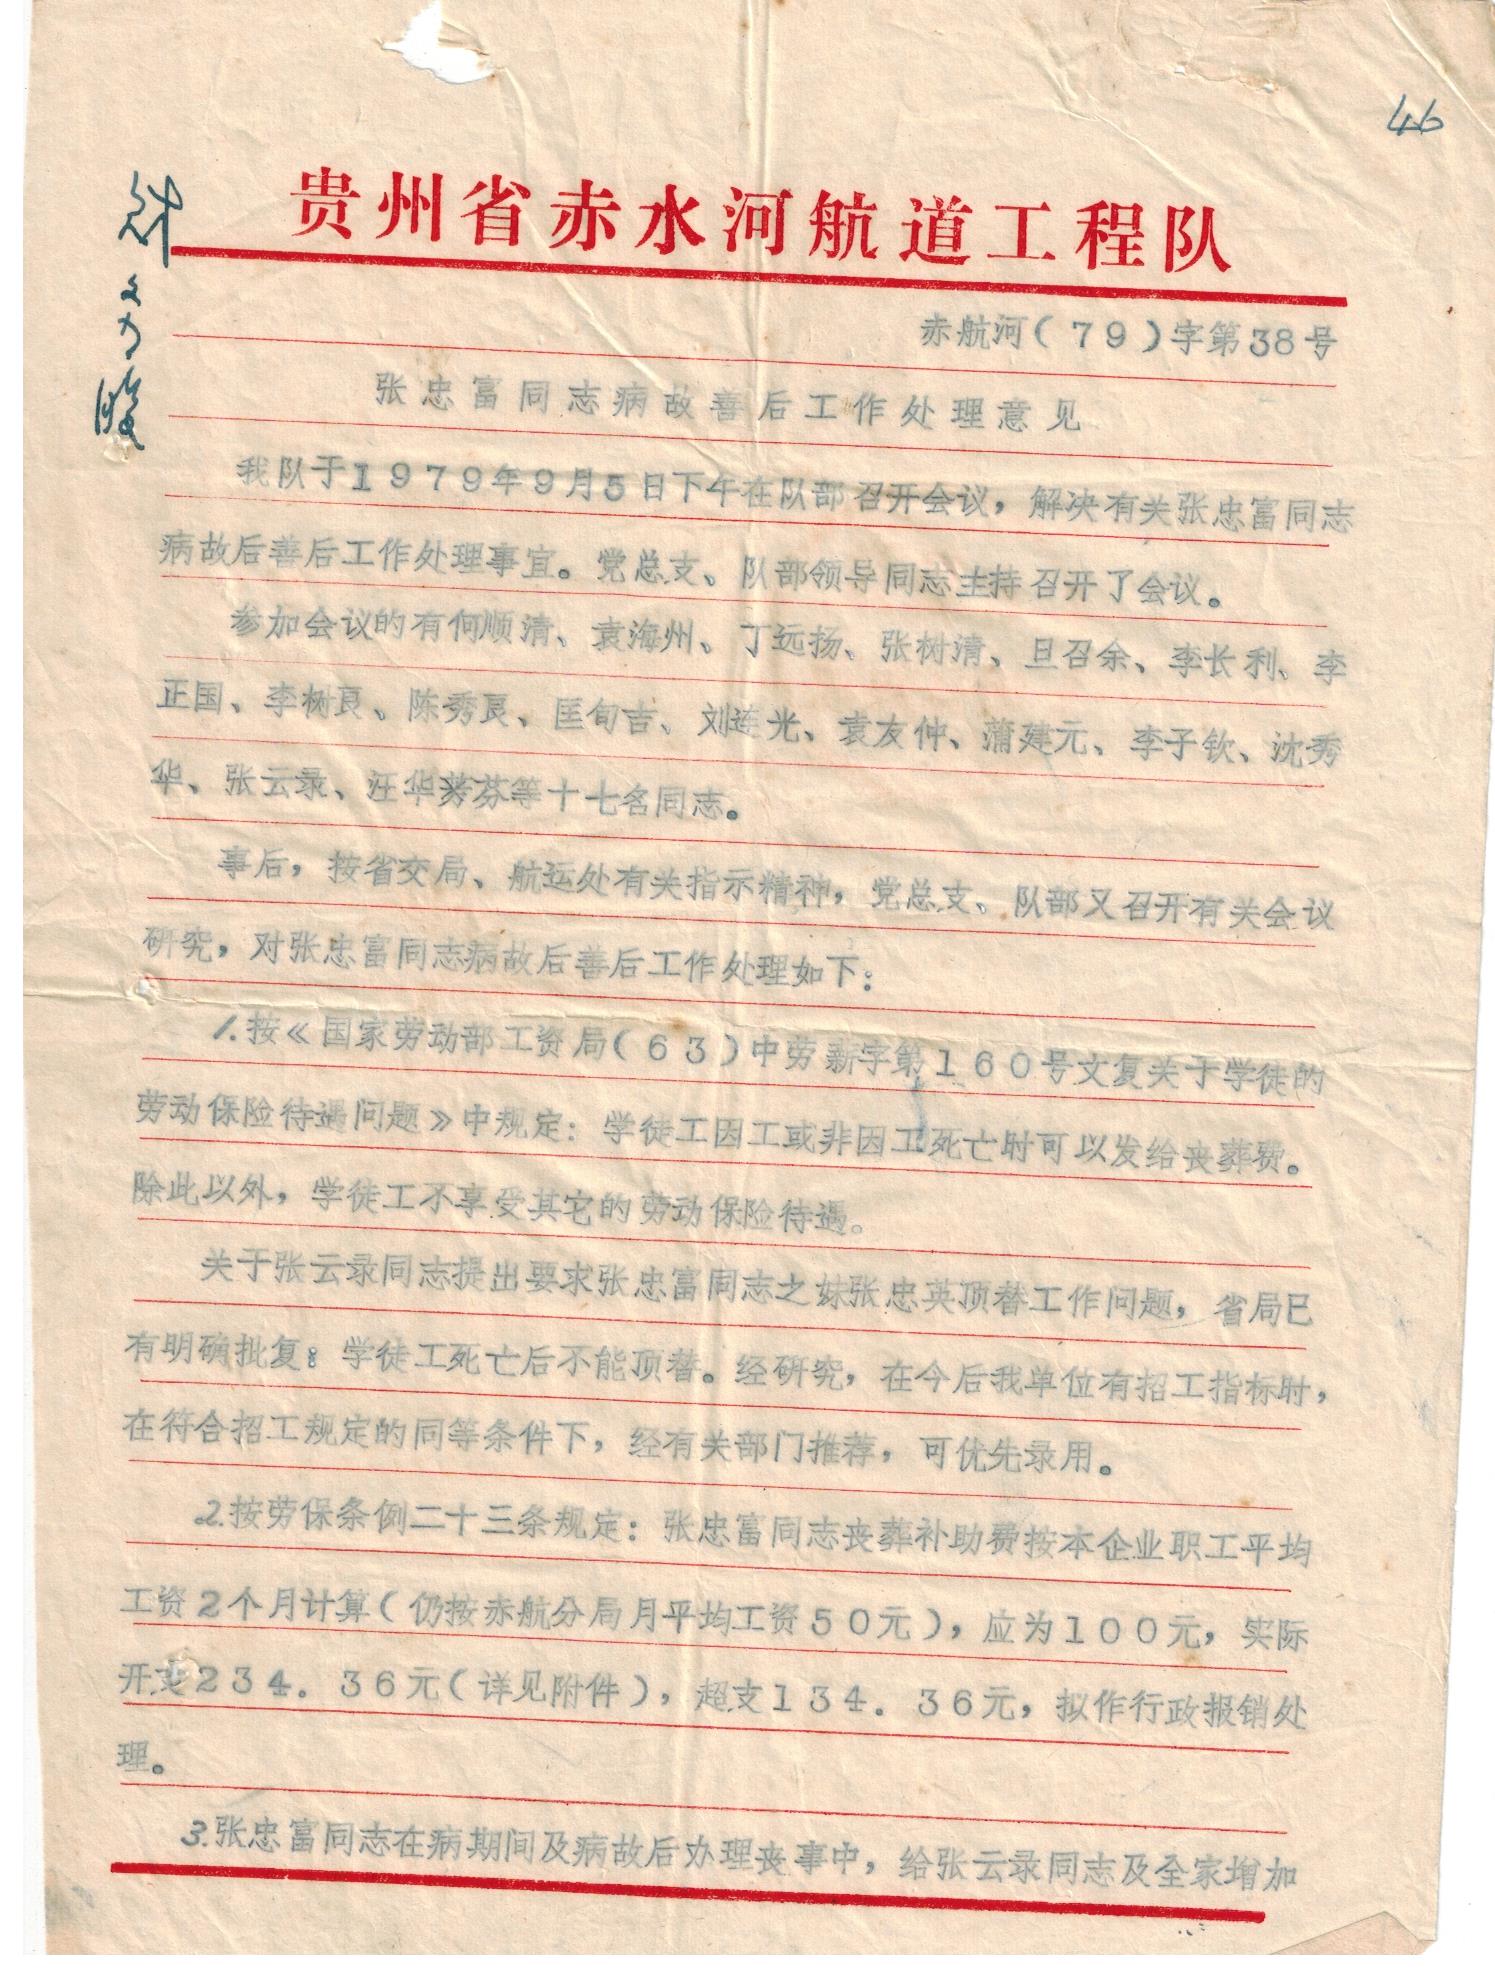 46
贵州省赤水河航道工程队
财
赤航河(79)字第38号
张忠富同志病故善后工作处理意见
我队于1979年9月5日下午在队部召开会议，解决有关张忠富同志
病故后善后工作处理事宜。党总支、队部领导同志主持召开了会议。
参加会议的有何顺清、袁海州、丁远扬、张树清、旦召余、李长利、李
正国、李树良、陈秀良、匡旬吉、刘连光、袁友仲、蒲建元、李子钦、沈秀
华、张云录、汪华芬等十七名同志。
事后，按省交局、航运处有关指示精神，党总支、队部又召开有关会议
研究，对张忠富同志病故后善后工作处理如下：
1.按《国家劳动部工资局(63)中劳薪字第160号文复关于学徒的
劳动保险待遇问题》中规定：学徒工因工或非因工死亡时可以发给丧葬费。
除此以外，学徒工不享受其它的劳动保险待遇。
关于张云录同志提出要求张忠富同志之妹张忠英顶替工作问题，省局已
有明确批复：学徒工死亡后不能顶替。经研究，在今后我单位有招工指标时，
在符合招工规定的同等条件下，经有关部门推荐，可优先录用。
2.按劳保条例二十三条规定：张忠富同志丧葬补助费按本企业职工平均
工资2个月计算(仍按赤航分局月平均工资50元)，应为100元，实际
开支234.36元(详见附件)，超支134.36元，拟作行政报销处
理。
3.张忠富同志在病期间及病故后办理丧事中，给张云录同志及全家增加